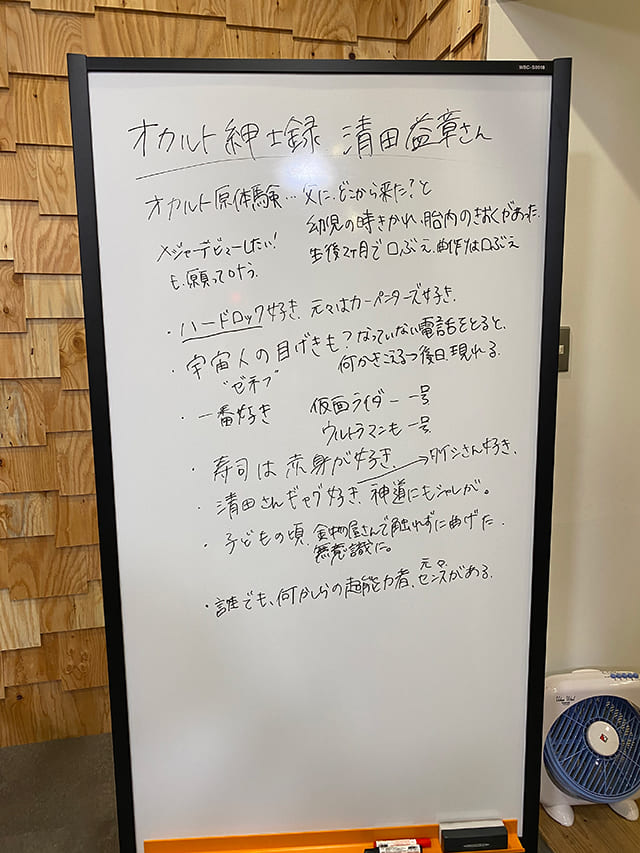 WBC-S0918
オカルト紳士録 清田益章さん
オカルト原体験… 父に、どこから来た?と
幼児の時きかれ、胎内のきおくがあった.
メジャーデビューしたい!
も、願って叶う.
生後2ヶ月で口ぶえ. 曲作りは口ぶえ
・ハードロック好き、元々はカーペンターズ好き.
・宇宙人の目げきも? なっていない電話をとると、
何かきこえる→後日、現れる.
"ゼネフ"
・一番好き 仮面ライダー 一号
ウルトラマンも 一号
・寿司は赤身が好き.
→ダイシさん好き.
・清田さんギャグ好き、神道にもシャレが。
・子どもの頃、金物屋さんで触れずに曲げた.
無意識に。
・誰でも、何かしらの超能力者、元々センスがある.